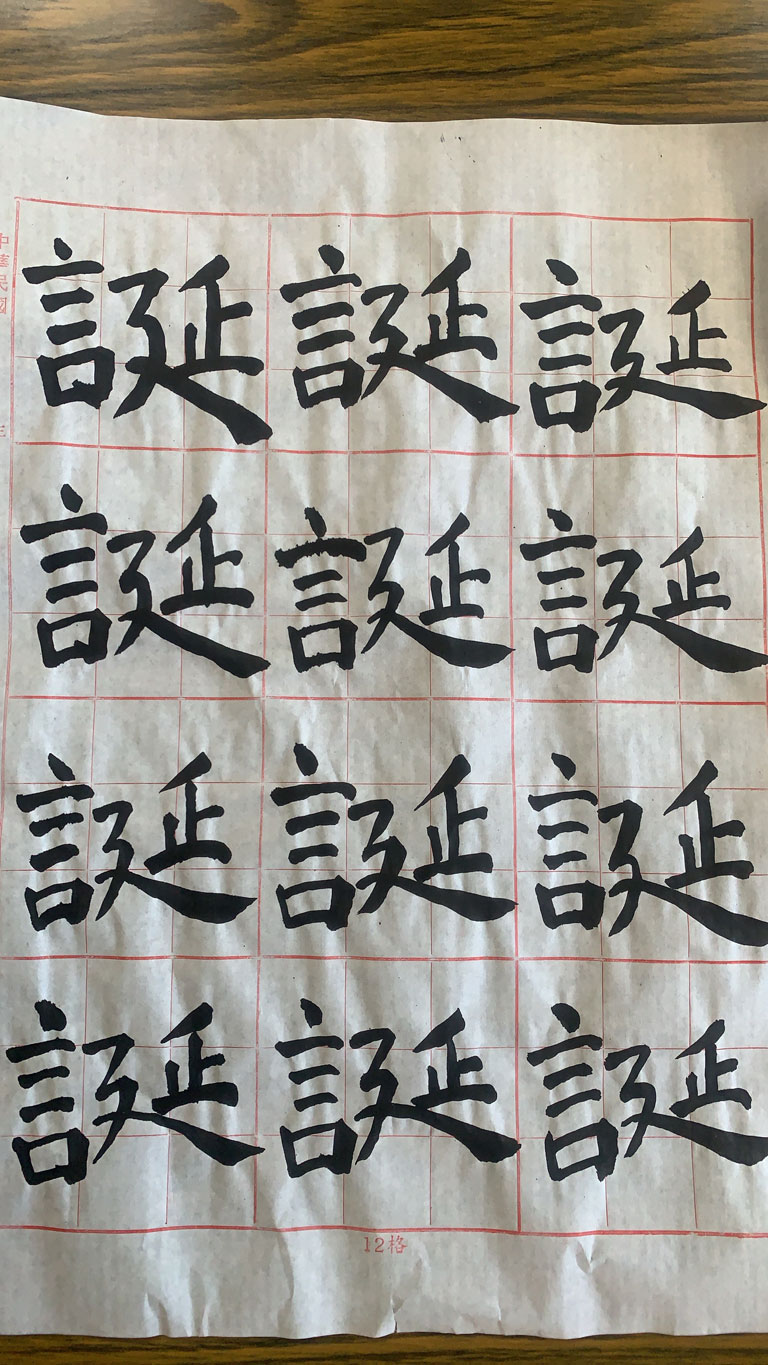 中華民國
年
誕誕誕
誕誕誕
誕誕誕
誕誕誕
12格